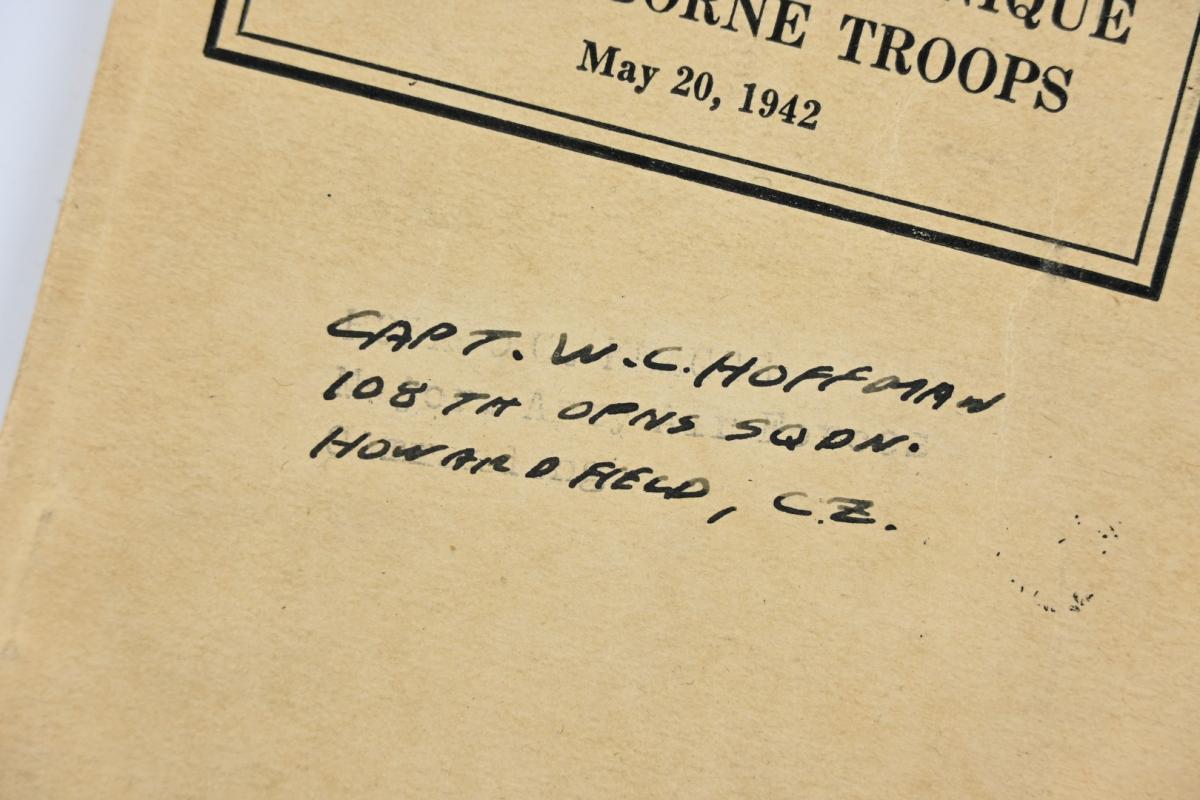 NIQUE
BORNE TROOPS
May 20, 1942
CAPT. W.C. HOFFMAN
108 TH OPNS SQDN.
HOWARD FIELD, C.Z.